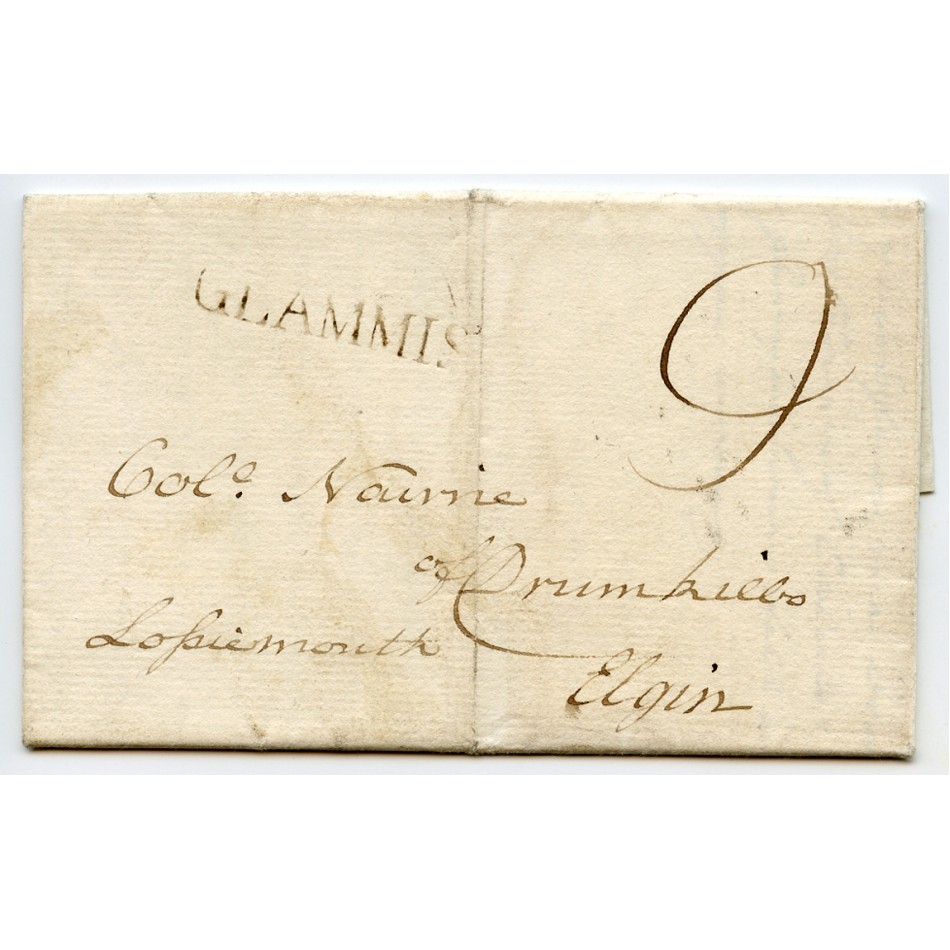 GLAMMIS
9
Col.ᵉ Nairne
of Drumkilbo
Lossiemouth
Elgin